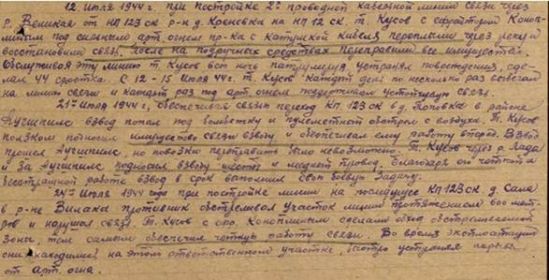 12 июля 1944 г. при постройке 2х проводной кабельной линии связи через
р. Великая от НП 123 СК р-н д. Хреновка на КП 12 СК т. Кусов с ефрейтором Коно-
под сильным арт. огнем пр-ка с катушкой кабеля переплыли через реку и
восстановили связь, после на подручных средствах переправили все имущество.
Обслуживая эту линию т. Кусов всю ночь патрулируя, устранял повреждения, сде-
лал 44 сростка. С 12 - 15 июля 44 г. т. Кусов каждый день по несколько раз выезжал
на линию связи и каждый раз под арт. огнем поддерживал устойчивую связь.
21го июля 1944 г. обеспечивая связью переход КП 123 СК в д. Поповка в районе
взвод попал под бомбежку и пулеметный обстрел с воздуха. Т. Кусов
ползком подносил имущество связи взводу и обеспечивал ему работу вперед. Взвод
прошел а повозки переправить было невозможно. Т. Кусов через р. Лада
и за подносил взводу шесты и медный провод, благодаря он четкой и
бесстрашной работе взвод в срок выполнил свою боевую задачу.
24го июля 1944 года при постройке линии на последующее КП 123 СК д. Сала
в р-не Вилаки противник обстреливал участок линии протяжением 600 мет-
ров и нарушал связь. Т. Кусов с сделали обход обстреливаемой
зоны, тем самым обеспечил четкую работу связи. Во время эксплоатации
они находились на этом ответственном участке, быстро устраняя
от арт. огня.